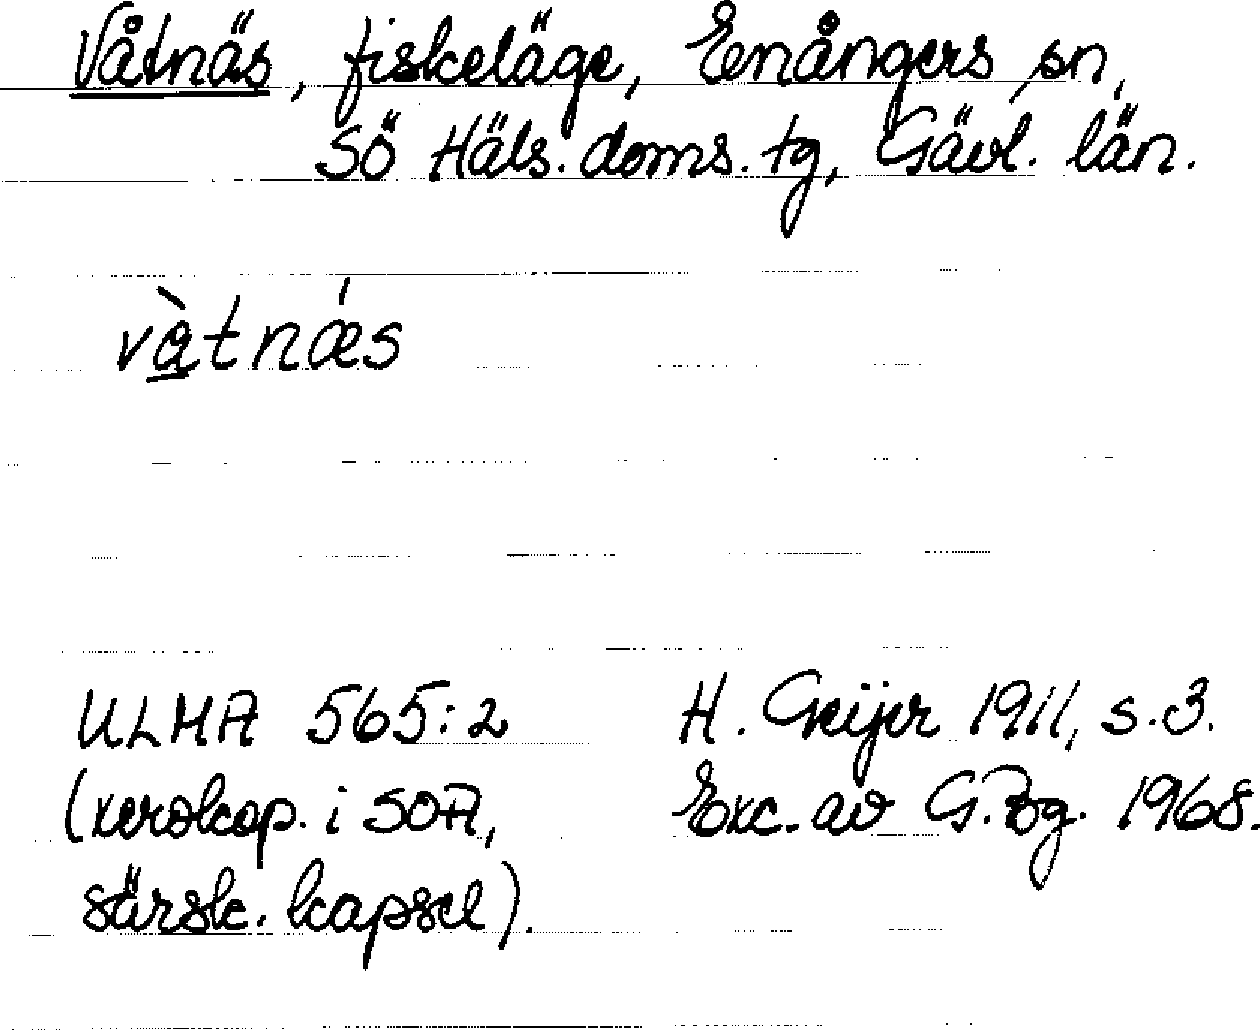 Våtnäs, fiskeläge, Enångers sn,
Sö Häls. doms. tg, Gävl. län.
và̱tnǽs
ULMA 565:2
(xerokop. i SOA,
särsk. kapsel).
H. Geijer 1911, s.3.
Exc. av G.Bg. 1968.